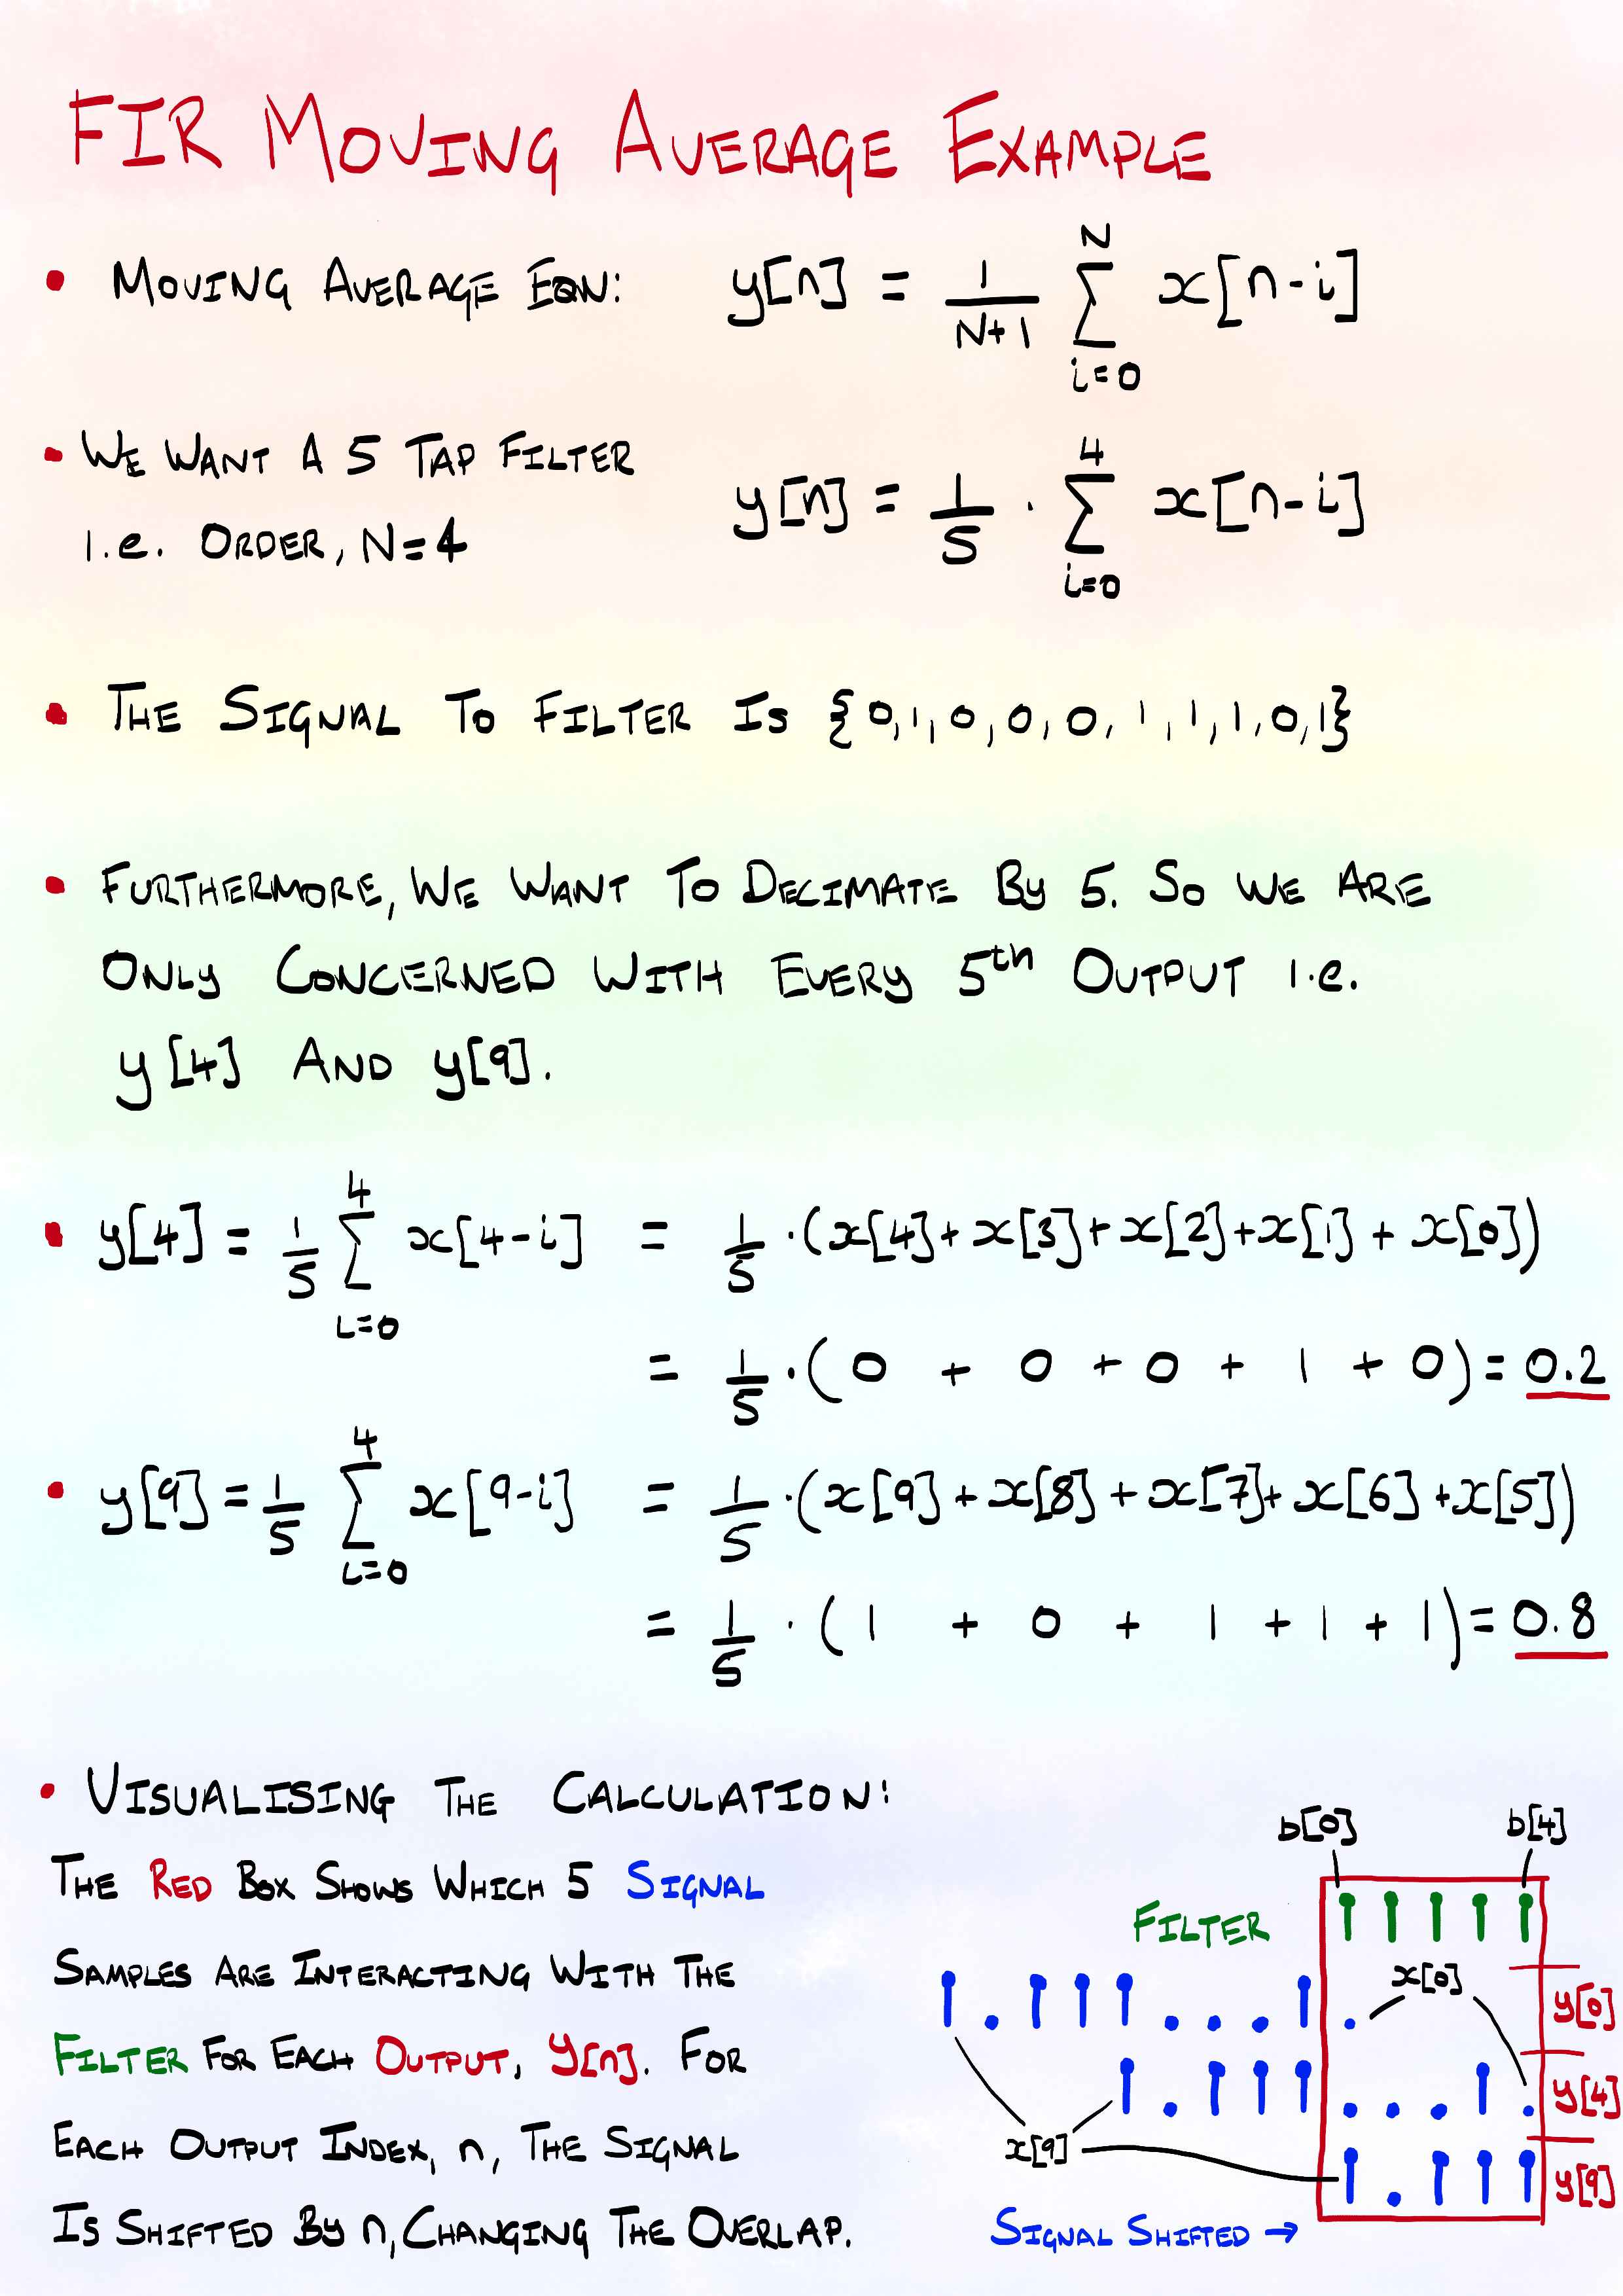 FIR MOVING AVERAGE EXAMPLE
• MOVING AVERAGE EQN: y[n] = 1/(N+1) N∑i=0 x[n-i]
• WE WANT A 5 TAP FILTER
i.e. ORDER, N=4
y[n] = 1/5 · 4∑i=0 x[n-i]
• THE SIGNAL TO FILTER IS {0,1,0,0,0,1,1,1,0,1}
• FURTHERMORE, WE WANT TO DECIMATE BY 5. SO WE ARE
ONLY CONCERNED WITH EVERY 5th OUTPUT i.e.
y[4] AND y[9].
• y[4] = 1/5 4∑i=0 x[4-i] = 1/5 ·(x[4]+x[3]+x[2]+x[1]+x[0])
= 1/5 ·(0 + 0 + 0 + 1 + 0) = 0.2
• y[9] = 1/5 4∑i=0 x[9-i] = 1/5 ·(x[9]+x[8]+x[7]+x[6]+x[5])
= 1/5 ·(1 + 0 + 1 + 1 + 1) = 0.8
• VISUALISING THE CALCULATION:
THE RED BOX SHOWS WHICH 5 SIGNAL
SAMPLES ARE INTERACTING WITH THE
FILTER FOR EACH OUTPUT, Y[n]. FOR
EACH OUTPUT INDEX, n, THE SIGNAL
IS SHIFTED BY n, CHANGING THE OVERLAP.
b[0] b[4]
FILTER
x[0]
y[0]
y[4]
x[9]
y[9]
SIGNAL SHIFTED →